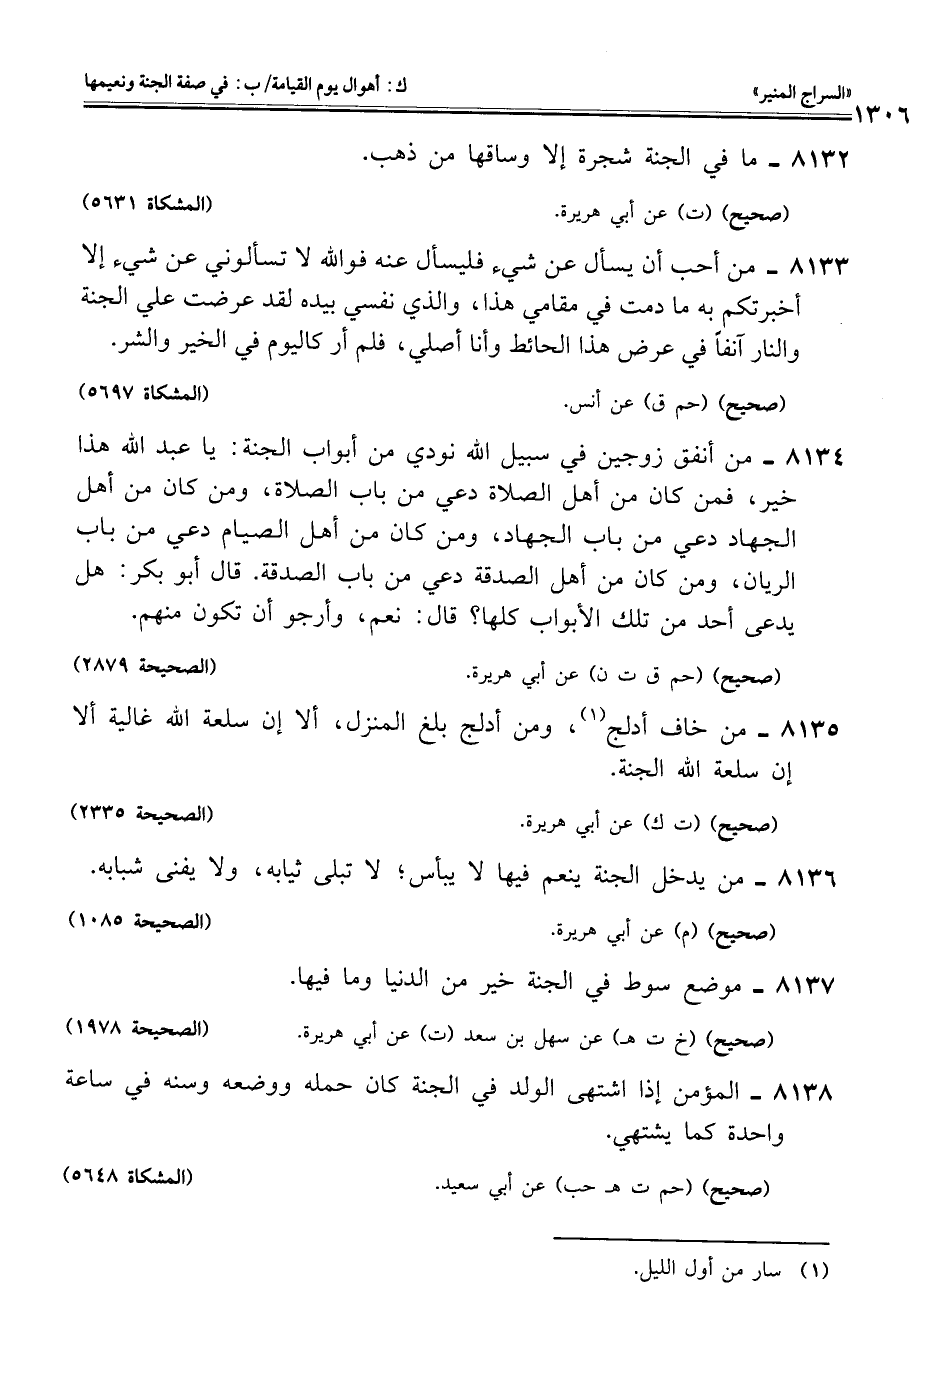 «السراج المنير» ك: أهوال يوم القيامة/ ب: في صفة الجنة ونعيمها
١٣٠٦
٨١٣٢ ـ ما في الجنة شجرة إلا وساقها من ذهب.
(صحيح) (ت) عن أبي هريرة. (المشكاة ٥٦٣١)
٨١٣٣ ـ من أحب أن يسأل عن شيء فليسأل عنه فوالله لا تسألوني عن شيء إلا
أخبرتكم به ما دمت في مقامي هذا، والذي نفسي بيده لقد عرضت علي الجنة
والنار آنفاً في عرض هذا الحائط وأنا أصلي، فلم أر كاليوم في الخير والشر.
(صحيح) (حم ق) عن أنس. (المشكاة ٥٦٩٧)
٨١٣٤ ـ من أنفق زوجين في سبيل الله نودي من أبواب الجنة: يا عبد الله هذا
خير، فمن كان من أهل الصلاة دعي من باب الصلاة، ومن كان من أهل
الجهاد دعي من باب الجهاد، ومن كان من أهل الصيام دعي من باب
الريان، ومن كان من أهل الصدقة دعي من باب الصدقة. قال أبو بكر: هل
يدعى أحد من تلك الأبواب كلها؟ قال: نعم، وأرجو أن تكون منهم.
(صحيح) (حم ق ت ن) عن أبي هريرة. (الصحيحة ٢٨٧٩)
٨١٣٥ ـ من خاف أدلج(١)، ومن أدلج بلغ المنزل، ألا إن سلعة الله غالية ألا
إن سلعة الله الجنة.
(صحيح) (ت ك) عن أبي هريرة. (الصحيحة ٢٣٣٥)
٨١٣٦ ـ من يدخل الجنة ينعم فيها لا يبأس؛ لا تبلى ثيابه، ولا يفنى شبابه.
(صحيح) (م) عن أبي هريرة. (الصحيحة ١٠٨٥)
٨١٣٧ ـ موضع سوط في الجنة خير من الدنيا وما فيها.
(صحيح) (خ ت هـ) عن سهل بن سعد (ت) عن أبي هريرة. (الصحيحة ١٩٧٨)
٨١٣٨ ـ المؤمن إذا اشتهى الولد في الجنة كان حمله ووضعه وسنه في ساعة
واحدة كما يشتهي.
(صحيح) (حم ت هـ حب) عن أبي سعيد. (المشكاة ٥٦٤٨)
(١) سار من أول الليل.